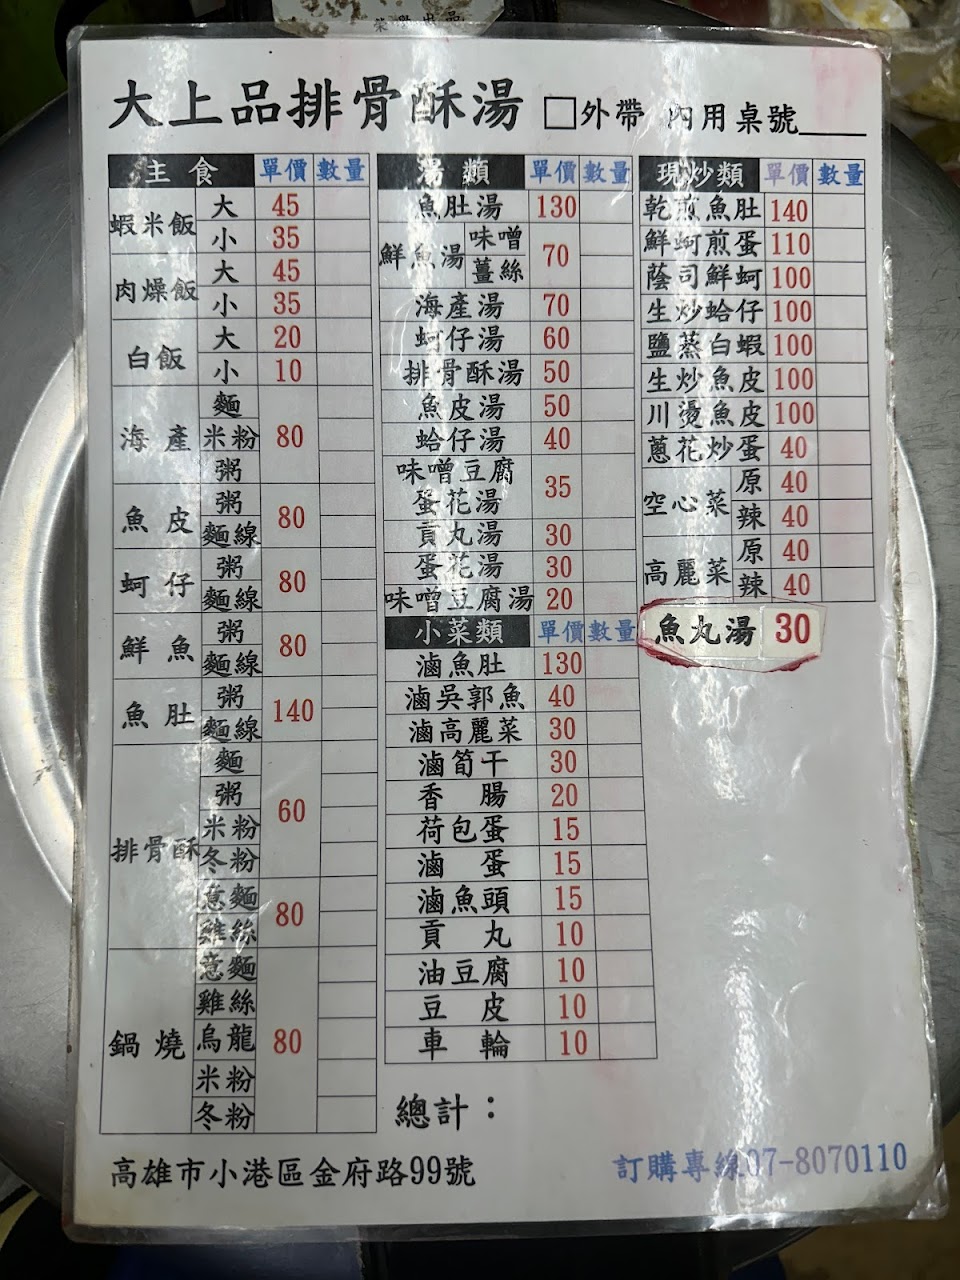 榮獲出品
大上品排骨酥湯 □外帶 內用桌號____
主食 單價 數量
蝦米飯 大 45
小 35
肉燥飯 大 45
小 35
白飯 大 20
小 10
海產 麵 米粉 粥 80
魚皮 粥 麵線 80
蚵仔 粥 麵線 80
鮮魚 粥 麵線 80
魚肚 粥 麵線 140
排骨酥 麵 粥 米粉 冬粉 60
意麵 雞絲 80
鍋燒 意麵 雞絲 烏龍 米粉 冬粉 80
湯類 單價 數量
魚肚湯 130
鮮魚湯 味噌 薑絲 70
海產湯 70
蚵仔湯 60
排骨酥湯 50
魚皮湯 50
蛤仔湯 40
味噌豆腐
蛋花湯 35
貢丸湯 30
蛋花湯 30
味噌豆腐湯 20
小菜類 單價 數量
滷魚肚 130
滷吳郭魚 40
滷高麗菜 30
滷筍干 30
香腸 20
荷包蛋 15
滷蛋 15
滷魚頭 15
貢丸 10
油豆腐 10
豆皮 10
車輪 10
總計：
現炒類 單價 數量
乾煎魚肚 140
鮮蚵煎蛋 110
蔭司鮮蚵 100
生炒蛤仔 100
鹽蒸白蝦 100
生炒魚皮 100
川燙魚皮 100
蔥花炒蛋 40
空心菜 原 40
辣 40
高麗菜 原 40
辣 40
魚丸湯 30
高雄市小港區金府路99號 訂購專線07-8070110